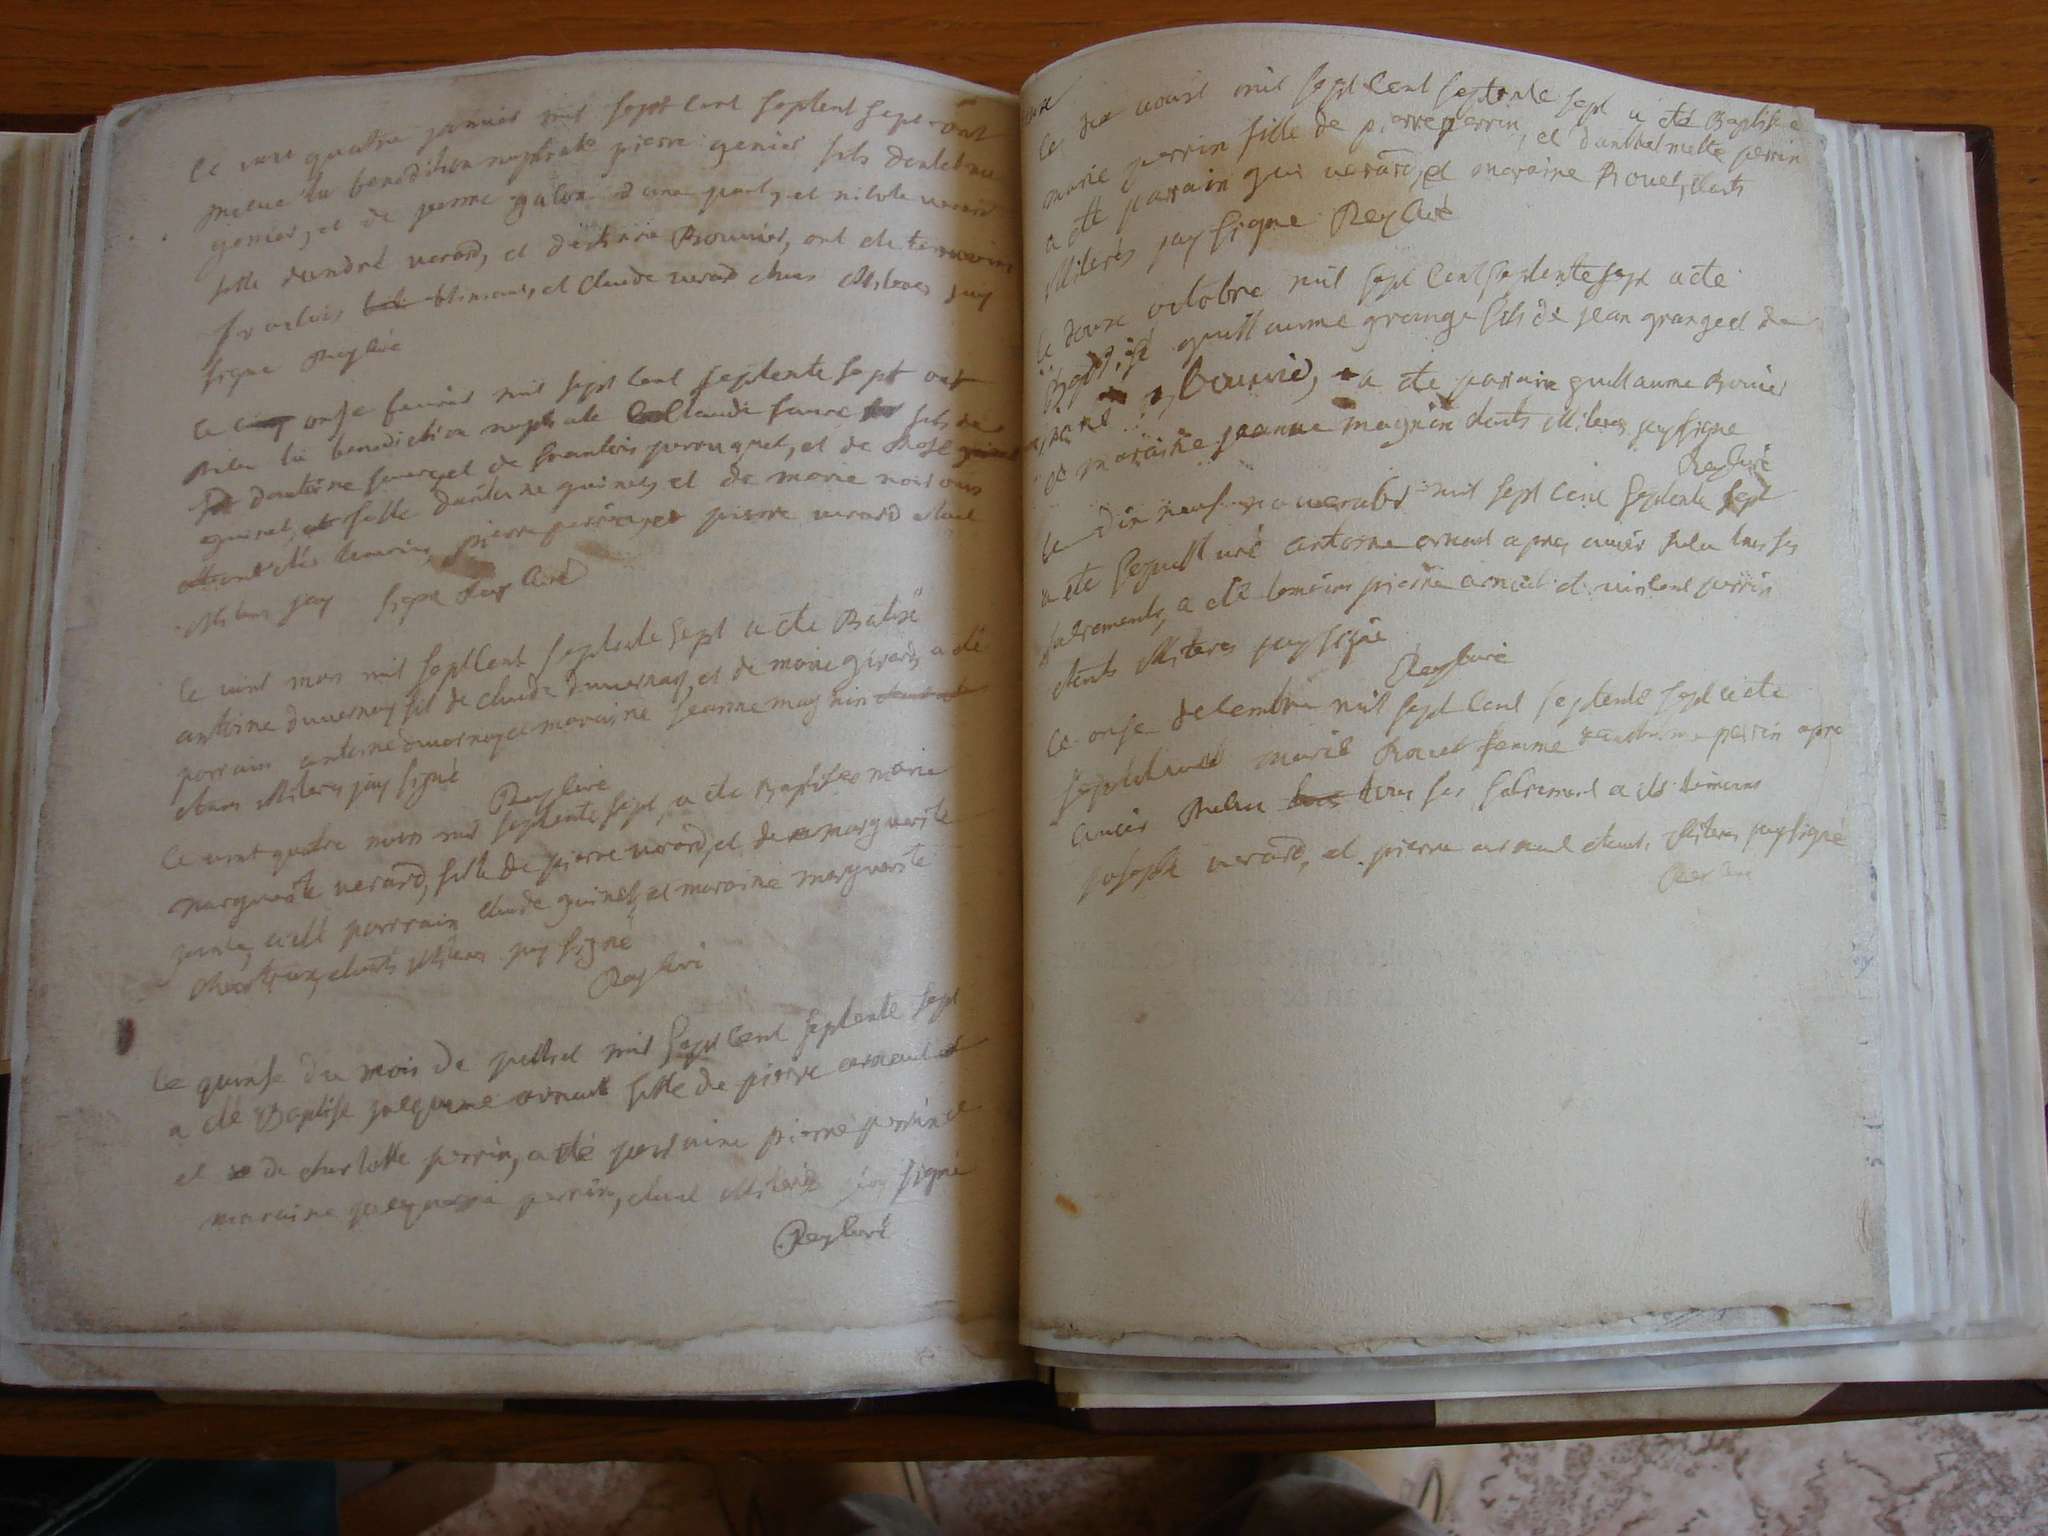 le vint quatre janvier mil sept cent septent sept ont
recue la benediction nuptiale pierre genier fils
genier, et de jeanne d'une part, et nicole verard
fille dandré verard, et Bouvier, ont ete temoins
francois et Claude verard illiteres jay
signe Rey Curé
le onse fevrier mil sept cent septente sept ont
recu la benediction nuptiale Claude faure fils de
dantoine faure, et de francoise perruquet, et de Rose guinet
guinet, fille dantoine guinet, et de marie
ont étés temoins, pierre perrin, et pierre verard etant
illiteres jay signe Rey Curé
le vint mars mil sept Cent septente sept a ete Batisé
antoine duvernay fil de claude duvernay, et de marie girard, a été
parrain antoine duvernay et maraine jeanne magnin
etans illiteres jay signé
Rey Curé
le vint quatre mars mil septente sept, a ete Baptisée marie
marguerite verard, fille de pierre verard, et de marguerite
a été parrain claude guinet, et maraine marguerite
etants illiteres jay signé
Rey Curé
le quinse du mois de juillet mil sept Cent septente sept
a été Baptisé jacqueme arnaud fille de pierre arnaud
et de charlotte perrin, a été parraine pierre perrin et
maraine jacqueme perrin, etant illiteres jay signé
Rey Curé
le dix aoust mil sept Cent septente sept a eté Baptisée
marie perrin fille de pierre perrin, et danthelmette perrin
a ete parrain guy verard, et maraine Rouet, etants
illiterés jay signe Rey Curé
le douse octobre mil sept Cent septente sept a eté
Baptisé guillaume grange fils de jean grange et de
bouvié, a eté paraire guillaume Bouvier
et maraine jeanne magnin etants illiteres jay signe
Rey Curé
le dix neuf novembre mil sept Cent septente sept
a ete sepulturé antoine arnaud apres avoir recu tous ses
sacrements, a eté temoins pierre arnaud et vincent perrin
etants illiteres jay signe
Rey Curé
le onse decembre mil sept Cent septente sept a ete
sepulturé marie Rouet femme perrin apre
avoir Recu tous ses sacrement a ete temoins
joseph verard, et pierre arnaud etant illiteres jay signé
Rey Curé